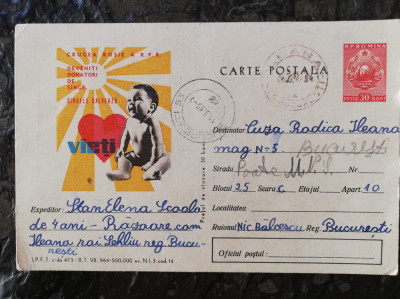 CRUCEA ROSIE A R.P.R.
DEVENIȚI
DONATORI
DE
SINGE
SINGELE SALVEAZĂ
vieți
CARTE POSTALA
R.P. ROMINA
POSTA 30 BANI
Destinatar Cuza Radica Ileana
mag N=5. București
Strada Poate M.P.S.
Blocul 25 Scara C Etajul Apart. 10
Localitatea
Raionul Nic. Balcescu Reg. București
Oficiul poștal:
Prețul de vînzare 30 bani
Expeditor: Stan Elena Scoala
de 4 ani - Răsoare com
Ileana rai Lehliu reg. Bucu-
resti
I.P.F.T. c-da 475 - B.T. VII. 964-500.000 ex. N.I. 3 cod. 14